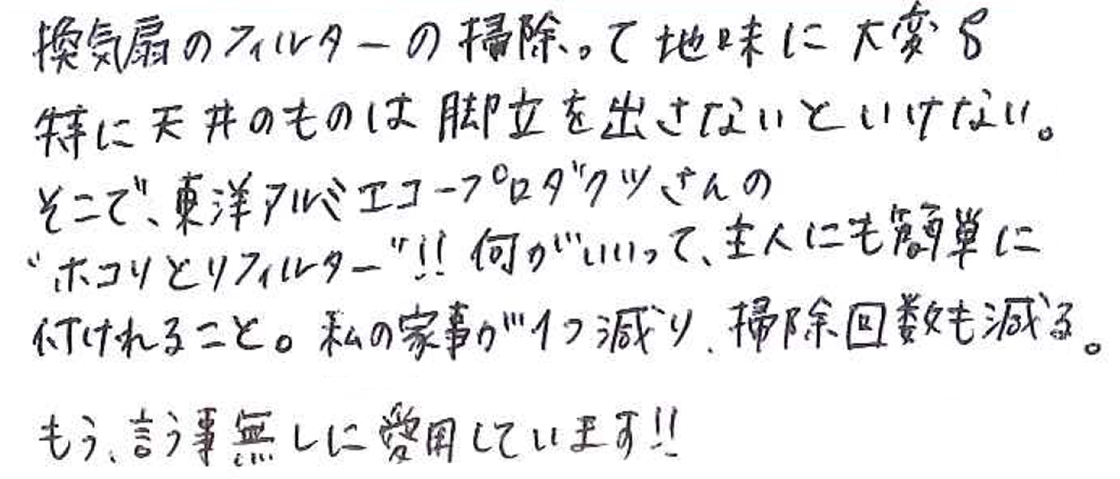 換気扇のフィルターの掃除って地味に大変
特に天井のものは脚立を出さないといけない。
そこで、東洋アルミエコープロダクツさんの
“ホコリとりフィルター”!! 何がいいって、主人にも簡単に
付けれること。私の家事が1つ減り、掃除回数も減る。
もう、言う事無しに愛用しています!!